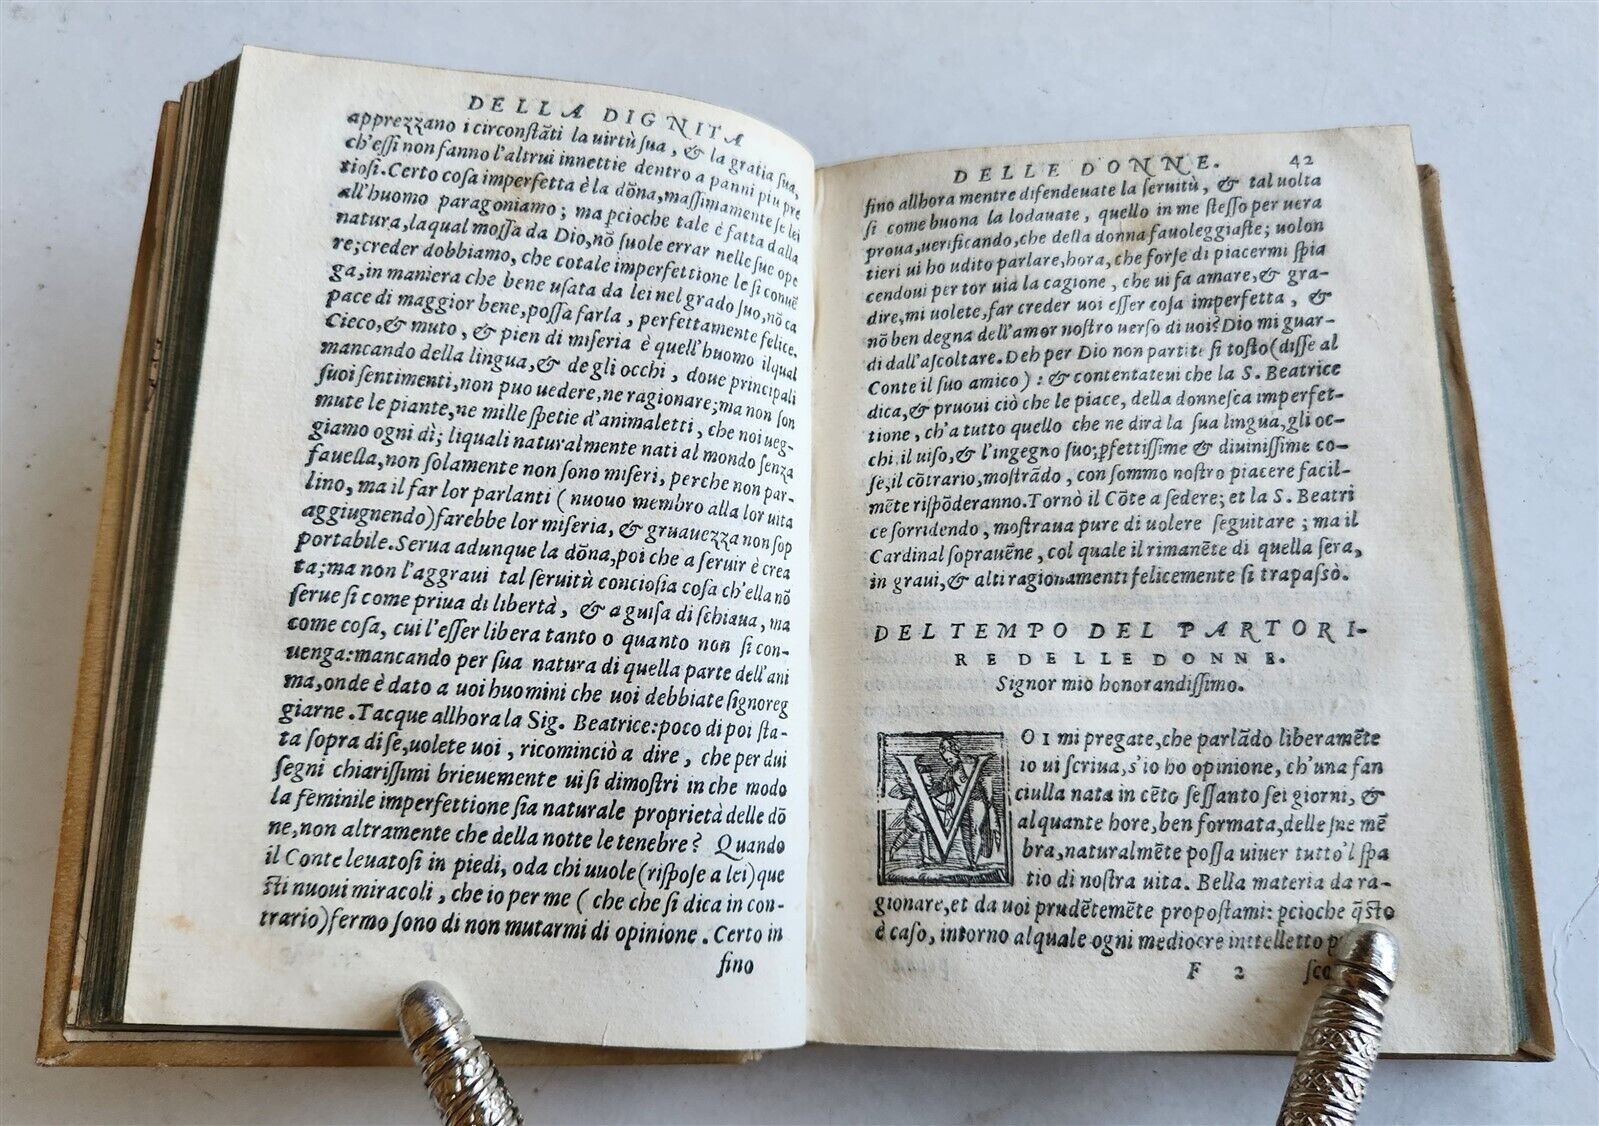 DELLA DIGNITA
apprezzano i circonſtāti la uirtù ſua, & la gratia ſua,
ch'eſſi non fanno l'altrui innettie dentro a panni piu pre
tioſi. Certo coſa imperfetta è la dōna, maſſimamente ſe lei
all'huomo paragoniamo; ma ꝑcioche tale è fatta dalla
natura, laqual moſſa da Dio, nō ſuole errar nelle ſue ope
re; creder dobbiamo, che cotale imperfettione le ſi conuē
ga, in maniera che bene uſata da lei nel grado ſuo, nō ca
pace di maggior bene, poſſa farla, perfettamente felice.
Cieco, & muto, & pien di miſeria è quell'huomo ilqual
mancando della lingua, & de gli occhi, doue principali
ſuoi ſentimenti, non puo uedere, ne ragionare; ma non ſon
mute le piante, ne mille ſpetie d'animaletti, che noi ueg-
giamo ogni dì; liquali naturalmente nati al mondo ſenza
fauella, non ſolamente non ſono miſeri, perche non par-
lino, ma il far lor parlanti (nuouo membro alla lor uita
aggiugnendo) farebbe lor miſeria, & grauezza non ſop
portabile. Serua adunque la dōna, poi che a ſeruir è crea
ta; ma non l'aggraui tal ſeruitù concioſia coſa ch'ella nō
ſerue ſi come priua di libertà, & a guiſa di ſchiaua, ma
come coſa, cui l'eſſer libera tanto o quanto non ſi con-
uenga: mancando per ſua natura di quella parte dell'ani
ma, onde è dato a uoi huomini che uoi debbiate ſignoreg
giarne. Tacque allhora la Sig. Beatrice: poco di poi ſta-
ta ſopra di ſe, uolete uoi, ricominciò a dire, che per dui
ſegni chiariſſimi brieuemente ui ſi dimoſtri in che modo
la feminile imperfettione ſia naturale proprietà delle dō
ne, non altramente che della notte le tenebre? Quando
il Conte leuatoſi in piedi, oda chi uuole (riſpoſe a lei) que
ſti nuoui miracoli, che io per me (che che ſi dica in con-
trario) fermo ſono di non mutarmi di opinione. Certo in
fino
DELLE DONNE. 42
fino allhora mentre difendeuate la ſeruitù, & tal uolta
ſi come buona la lodauate, quello in me ſteſſo per uera
proua, uerificando, che della donna fauoleggiaſte; uolon
tieri ui ho udito parlare, hora, che forſe di piacermi ſpia
cendoui per tor uia la cagione, che ui fa amare, & gra-
dire, mi uolete, far creder uoi eſſer coſa imperfetta, &
nō ben degna dell'amor noſtro uerſo di uoi? Dio mi guar-
di dall'aſcoltare. Deh per Dio non partite ſi toſto (diſſe al
Conte il ſuo amico): & contentateui che la S. Beatrice
dica, & pruoui ciò che le piace, della donneſca imperfet-
tione, ch'a tutto quello che ne dirà la ſua lingua, gli oc-
chi, il uiſo, & l'ingegno ſuo; ꝑfettiſſime & diuiniſſime co-
ſe, il cōtrario, moſtrādo, con ſommo noſtro piacere facil-
mēte riſpōderanno. Tornò il Cōte a ſedere; et la S. Beatri
ce ſorridendo, moſtraua pure di uolere ſeguitare; ma il
Cardinal ſoprauēne, col quale il rimanēte di quella ſera,
in graui, & alti ragionamenti felicemente ſi trapaſsò.
DEL TEMPO DEL PARTORI-
RE DELLE DONNE.
Signor mio honorandiſſimo.
VOI mi pregate, che parlādo liberamēte
io ui ſcriua, s'io ho opinione, ch'una fan
ciulla nata in cēto ſeſſanto ſei giorni, &
alquante hore, ben formata, delle ſue mē
bra, naturalmēte poſſa uiuer tutto'l ſpa
tio di noſtra uita. Bella materia da ra-
gionare, et da uoi prudētemēte propoſtami: ꝑcioche q̄ſto
è caſo, intorno al quale ogni mediocre intelletto
F 2